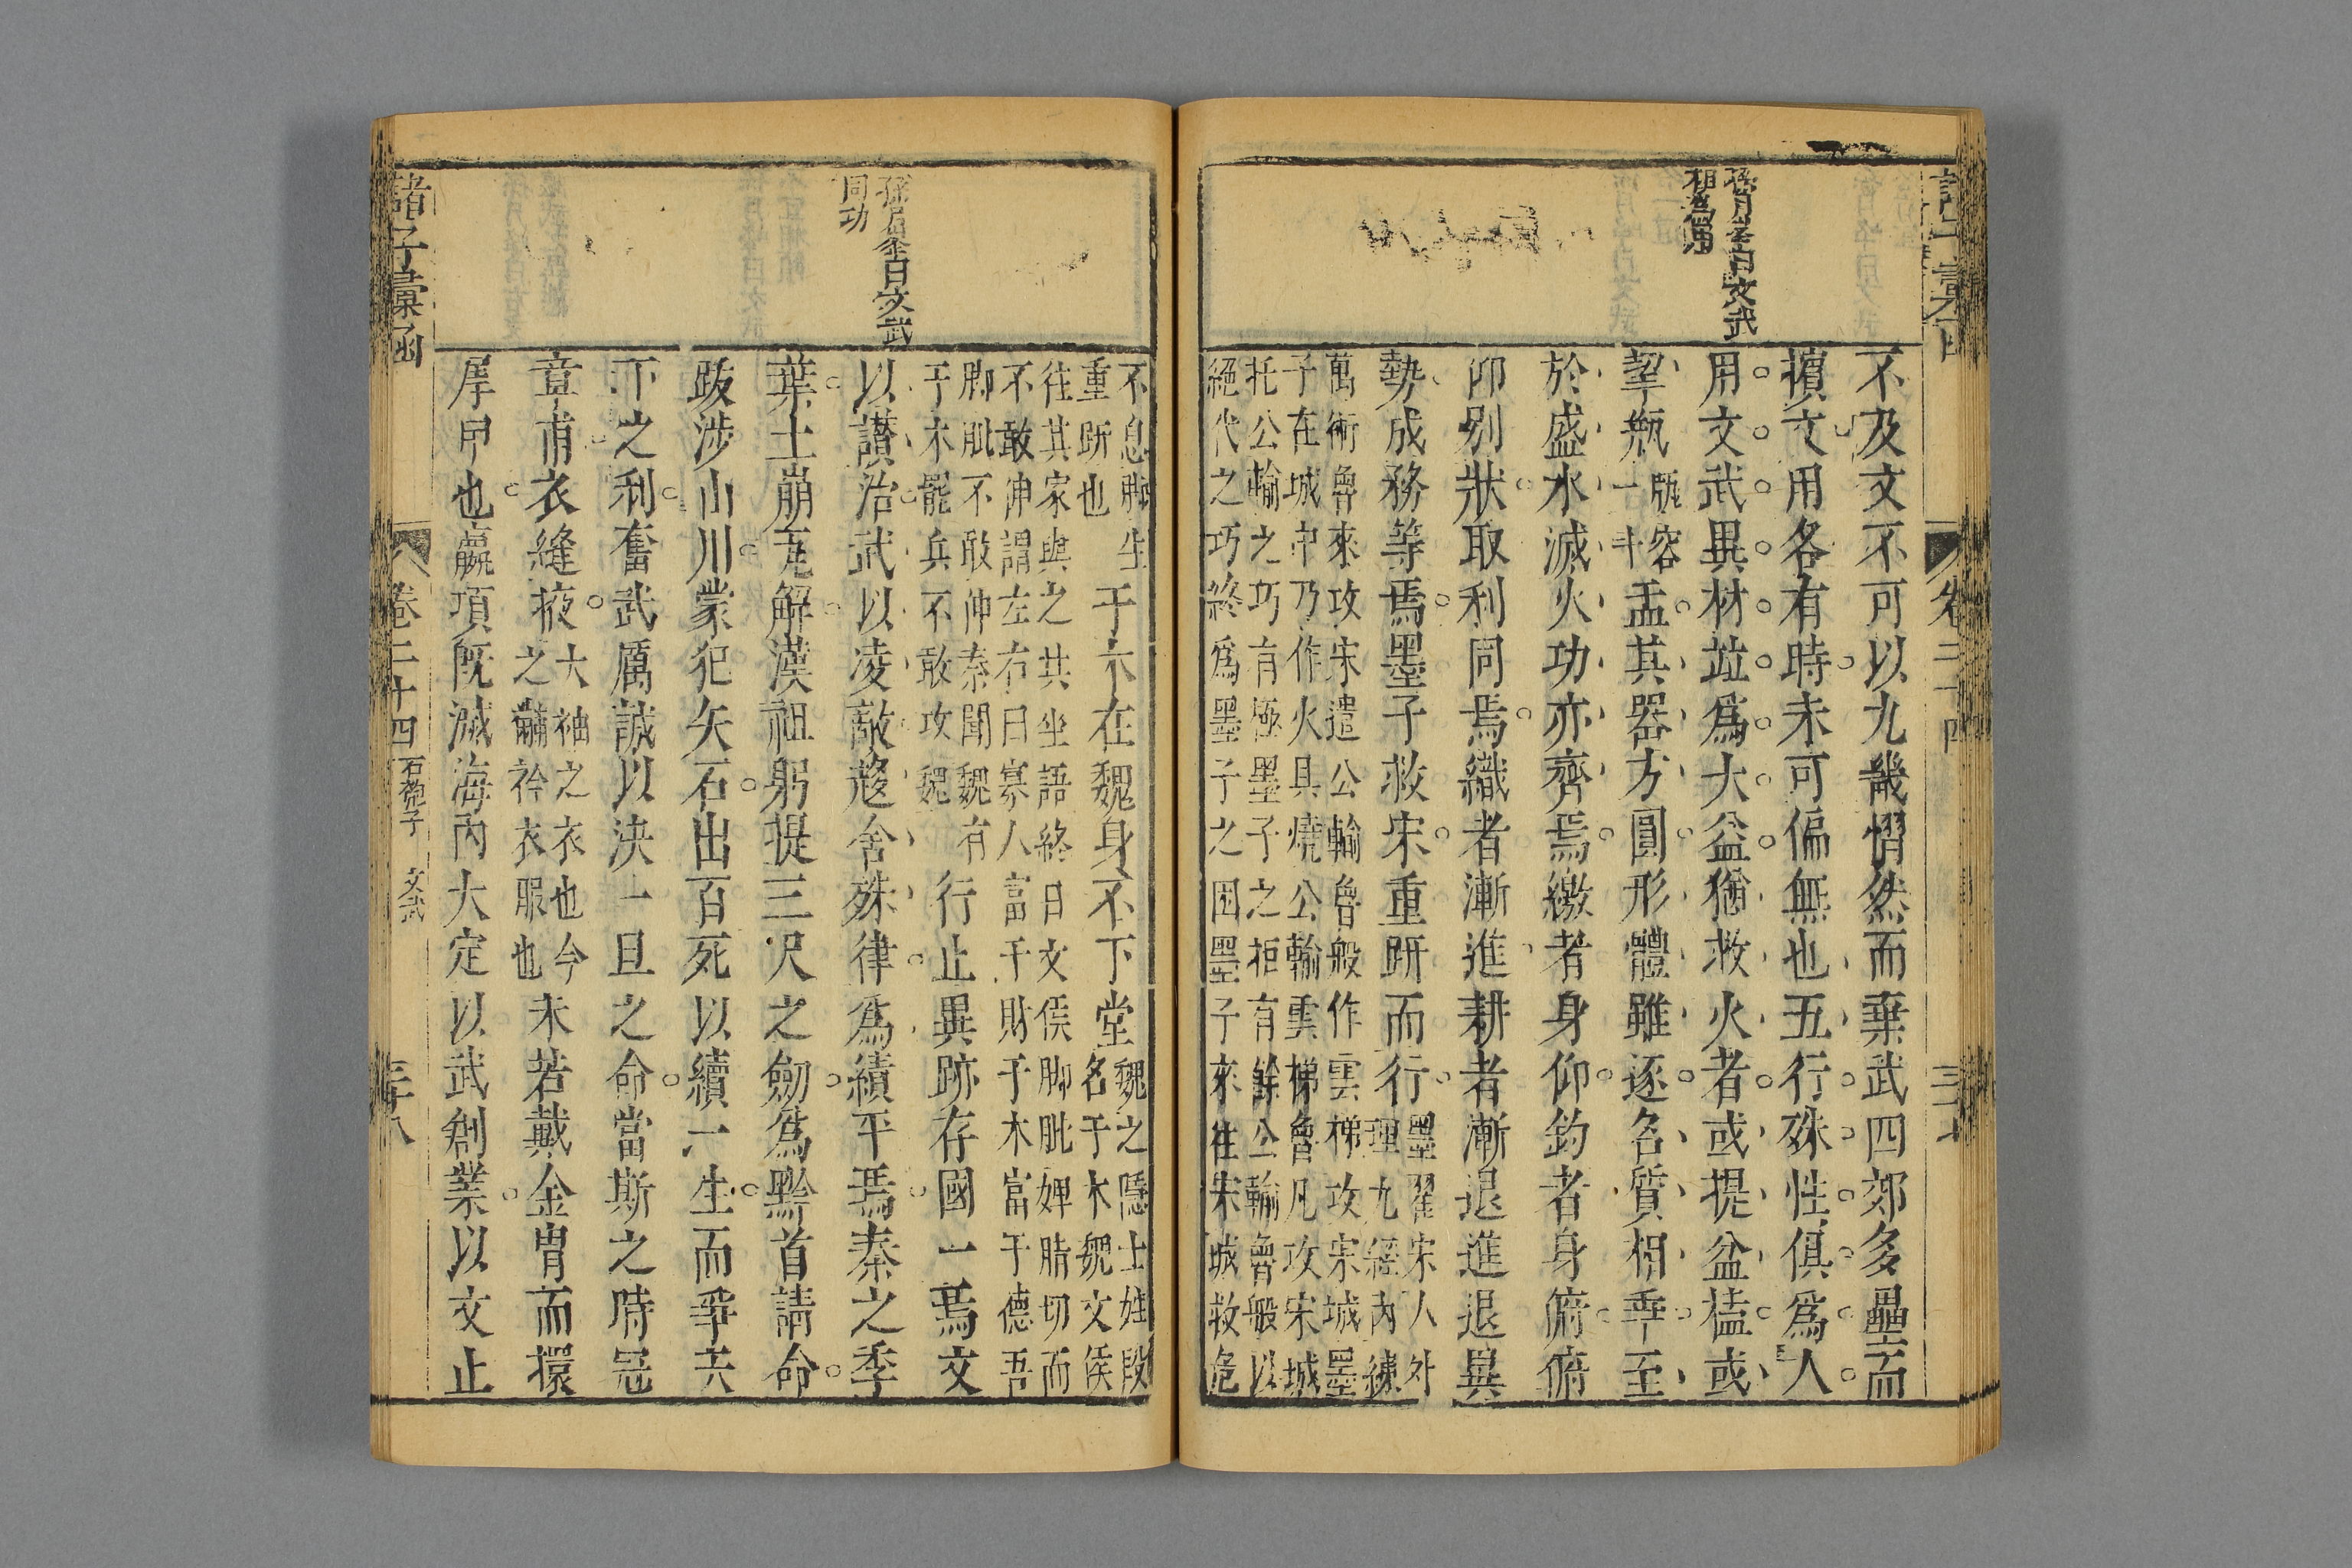 孫月峯曰文武
相爲用
不及文不可以九畿慴然而棄武四郊多壘而
擯文用各有時未可偏無也五行殊性俱爲人
用文武異材竝爲大益猶救火者或提盆榼或
挈瓶瓶容一斗盂其器方圓形體雖逐名質相乖至
於盛水滅火功亦齊焉繳者身仰釣者身俯俯
仰別狀取利同焉織者漸進耕者漸退進退異
勢成務等焉墨子救宋重趼而行墨翟宋人外
理九經內練
萬術魯來攻宋遣公輸魯般作雲梯攻宋城墨
子在城中乃作火具燒公輸雲梯魯凡攻宋城
托公輸之巧有極墨子之拒有餘公輸魯般以
絕代之巧終爲墨子之困墨子來往宋城救危
諸子彙函
卷二十四
不息脚生
重趼也
干木在魏身不下堂魏之隱士姓段
名干木魏文侯
往其家與之共坐語終日文侯脚肶婢脂切而
不敢伸謂左右曰寡人富于財干木富于德吾
脚肶不敢伸秦聞魏有
干木罷兵不敢攻魏
行止異跡存國一焉文
以讃治武以凌敵趍舍殊律爲績平焉秦之季
葉土崩瓦解漢祖躬提三尺之劒爲黔首請命
跋涉山川蒙犯矢石出百死以續一生而爭天
下之利奮武厲誠以決一旦之命當斯之時冠
章甫衣縫掖大袖之衣也今
之黼衿衣服也
未若戴金冑而擐
厚甲也嬴項旣滅海內大定以武創業以文止
孫月峯曰文武
同功
諸子彙函
卷二十四
石匏子
文武
三十八